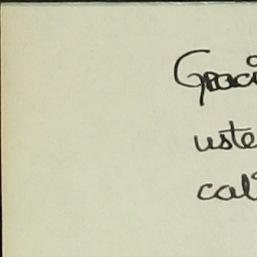 Graci
uste
cal